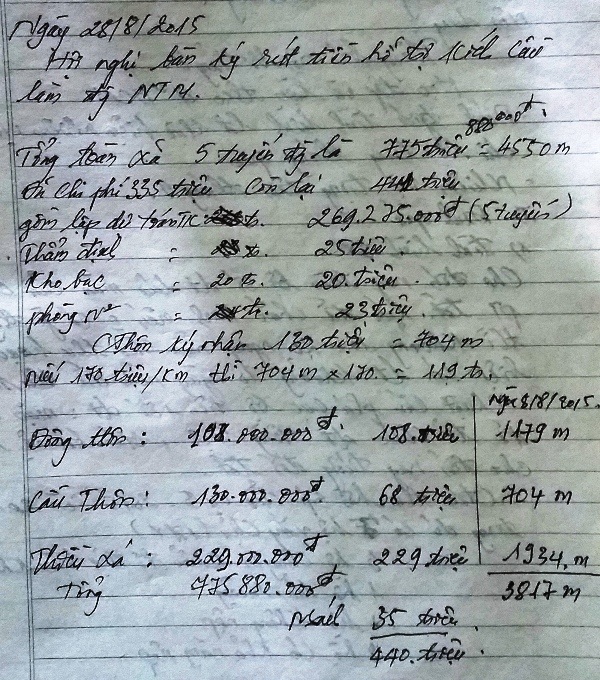 Ngày 28/8/2015
Hội nghị bàn ký rút tiền hỗ trợ kích cầu
làm đg NTM.
880.000đ
Tổng toàn xã 5 tuyến đg là 775 triệu = 4550 m
Đi chi phí 335 triệu Còn lại 441 triệu
gồm lập dự toán TK tr. 269.275.000đ (5 tuyến)
Thẩm định = tr. 25 triệu.
Kho bạc = 20 tr. 20. triệu.
phòng N² = tr. 23 triệu.
(Thôn ký nhận 130 triệu = 704 m
nếu 170 triệu/km thì 704 m x 170. = 119 tr.
Ngày 8/8/2015.
Đông thôn: 108.000.000đ. 108. triệu 1179 m
Cầu Thôn: 130.000.000đ 68 triệu 704 m
Xá: 229.000.000đ 229 triệu 1934. m
Tổng 775880.000đ 3817 m
35 triệu.
440. triệu.